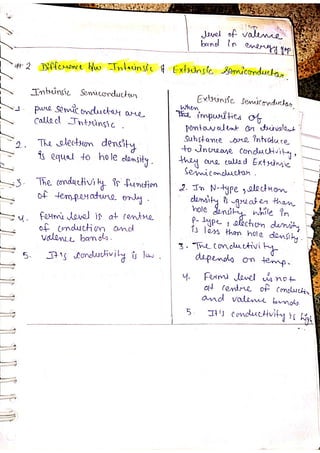 level of valence
band in energy gap
#2 Difference b/w Intrinsic & Extrinsic Semiconductor.
Intrinsic Semiconductor
1. pure semiconductor are
called Intrinsic.
2. The electron density
is equal to hole density.
3. The conductivity is function
of temperature only.
4. fermi level is at centre
of conduction and
valence bands.
5. It's conductivity is low.
Extrinsic Semiconductor
when
1. the impurities of
pentavalent or trivalent
substance are introduce
to increase conductivity,
they are called Extrinsic
Semiconductor.
2. In N-type, electron
density is greater than
hole density while in
p-type, electron density
is less than hole density.
3. The conductivity
depends on temp.
4. Fermi level is not
at centre of conductor
and valence bands
5. It's conductivity is high